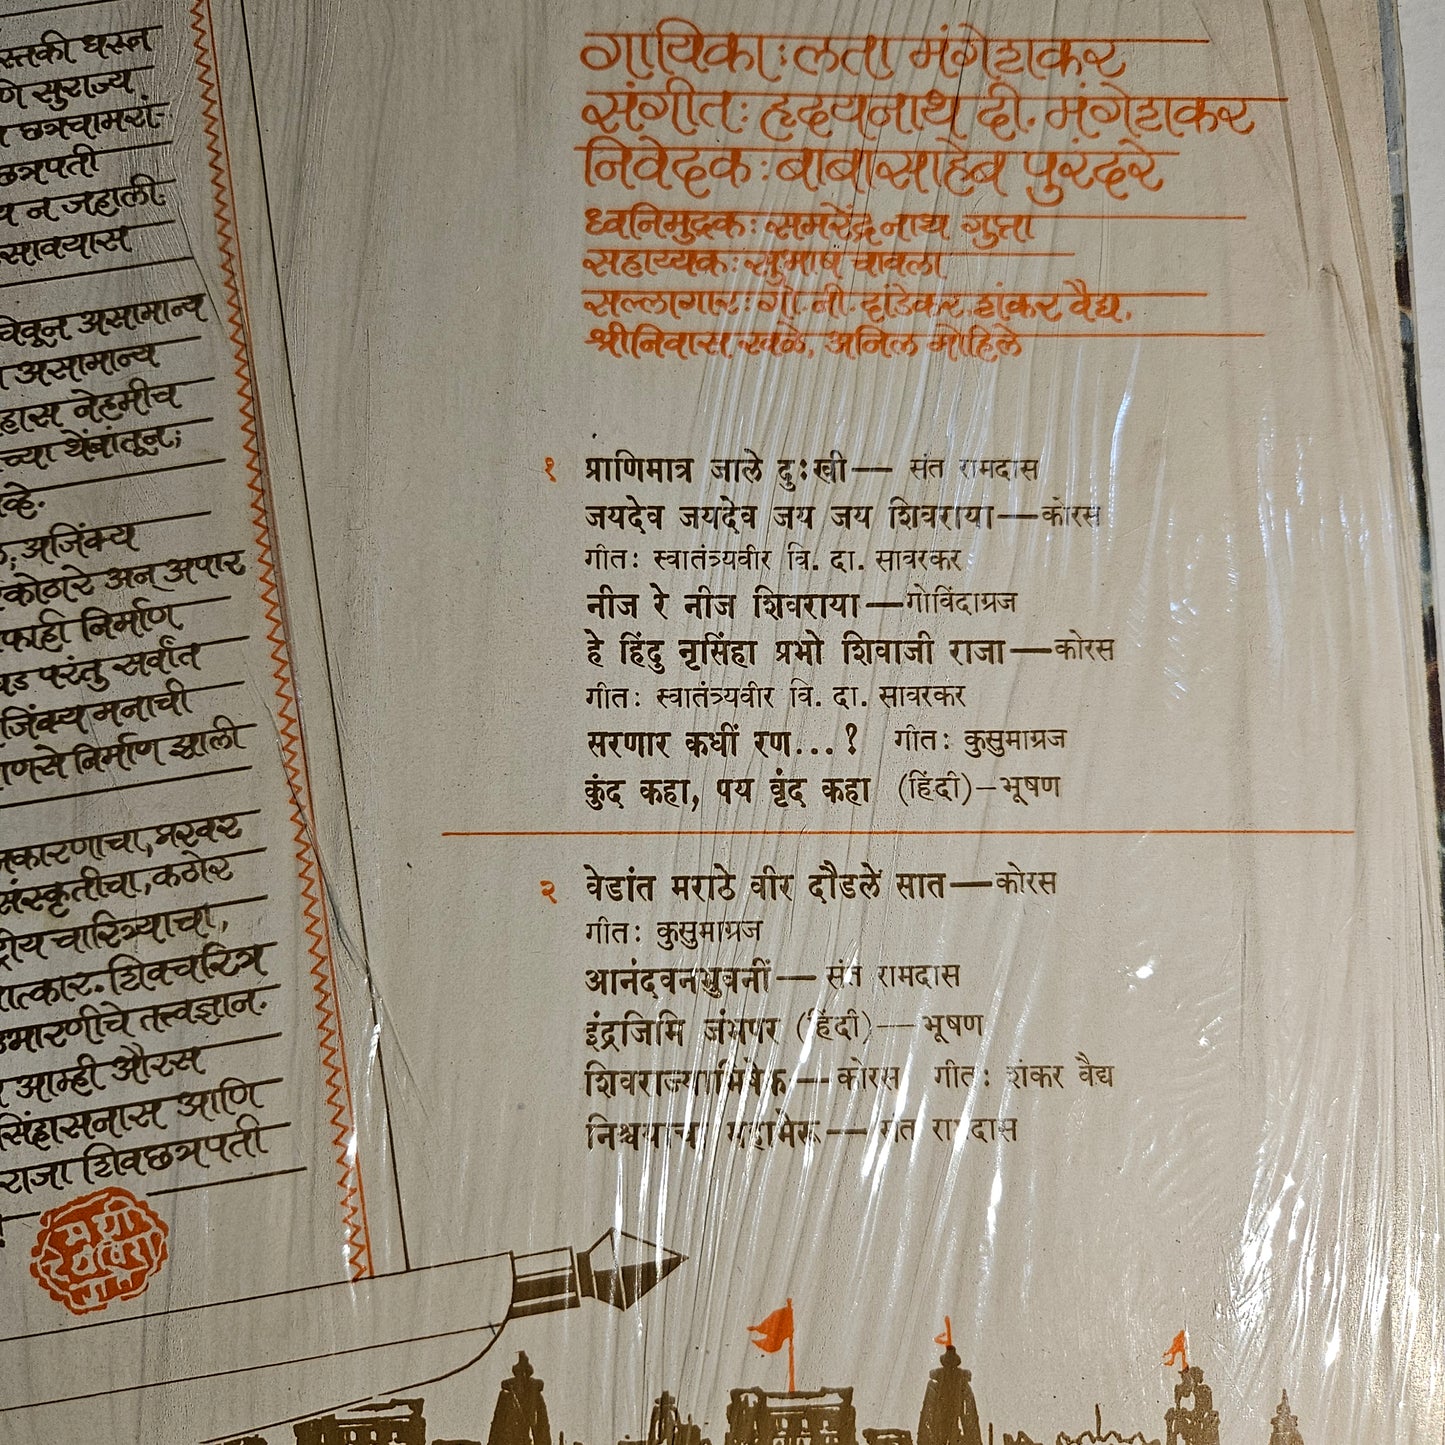 स्तकी धरून
णे सुराज्य
छत्रचामरां-
छत्रपती
य न जहाली.
सावयास
वेचून असामान्य
असामान्य
हास नेहमीच
च्या थेंबांतून;
व्हे.
अजिंक्य
कोठारे अन् अपार
काही निर्माण
परंतु सर्वांत
जिंक्य मनाची
णसे निर्माण झाली
कारणाचा, प्रखर
संस्कृतीचा, कठोर
ट्रीय चारित्र्याचा,
ात्कार. शिवचरित्र
उभारणीचे तत्त्वज्ञान.
आम्ही औरस
सिंहासनास आणि
राजा शिवछत्रपती
गायिका: लता मंगेशकर
संगीत: हृदयनाथ दी. मंगेशकर
निवेदक: बाबासाहेब पुरंदरे
ध्वनिमुद्रक: समरेंद्र नाथ गुप्ता
सहाय्यक: सुभाष चावला
सल्लागार: गो. नी. दांडेकर, शंकर वैद्य,
श्रीनिवास खळे, अनिल मोहिले
१ प्राणिमात्र जाले दुःखी — संत रामदास
जयदेव जयदेव जय जय शिवराया — कोरस
गीत: स्वातंत्र्यवीर वि. दा. सावरकर
नीज रे नीज शिवराया — गोविंदाग्रज
हे हिंदु नृसिंहा प्रभो शिवाजी राजा — कोरस
गीत: स्वातंत्र्यवीर वि. दा. सावरकर
सरणार कधीं रण...? गीत: कुसुमाग्रज
कुंद कहा, पय वृंद कहा (हिंदी) – भूषण
२ वेडांत मराठे वीर दौडले सात — कोरस
गीत: कुसुमाग्रज
आनंदवनभुवनीं — संत रामदास
इंद्रजिमि जंभपर (हिंदी) — भूषण
शिवराज्याभिषेक — कोरस गीत: शंकर वैद्य
निश्चयाचा महामेरू — संत रामदास